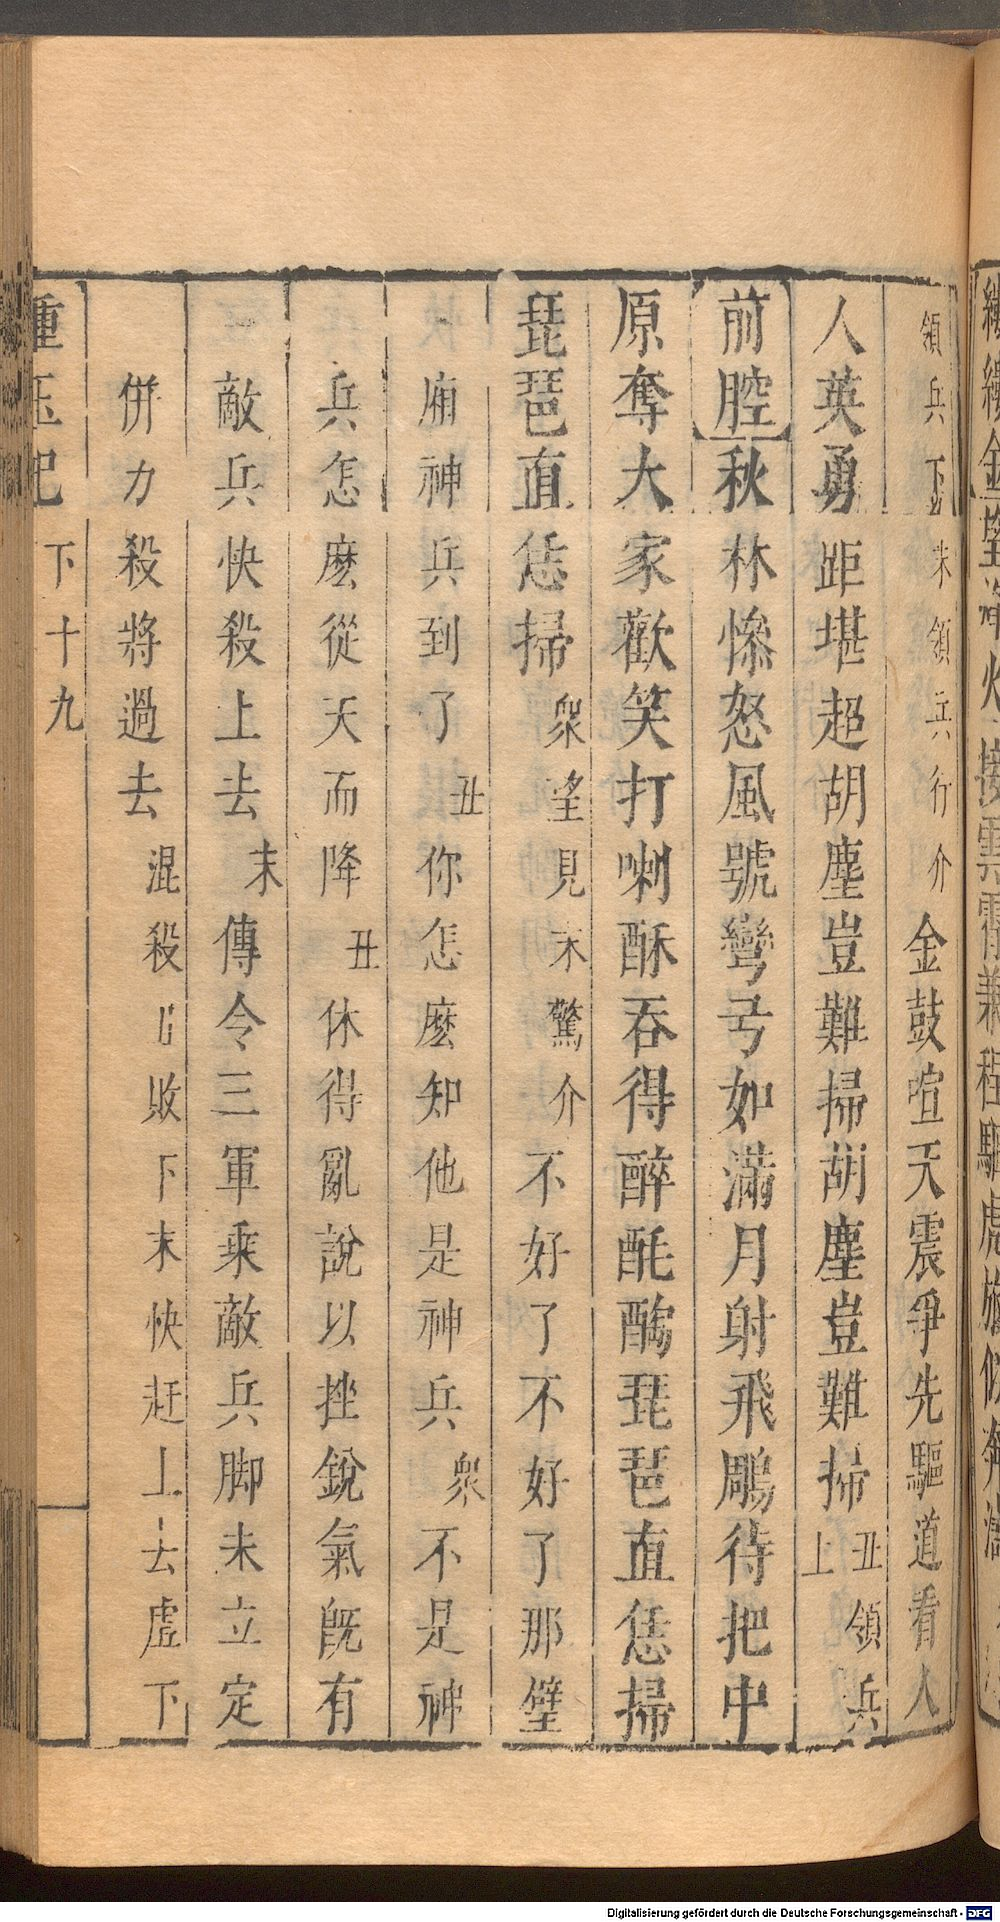 領兵下末領兵行介金鼓喧天震爭先驅道看人
人英勇距堪超胡塵豈難掃胡塵豈難掃丑上領兵
前腔秋林慘怒風號彎弓如滿月射飛鵰待把中
原奪大家歡笑打喇酥吞得醉酕醄琵琶直恁掃
琵琶直恁掃衆望見末驚介不好了不好了那壁
廂神兵到了丑你怎麽知他是神兵衆不是神
兵怎麽從天而降丑休得亂說以挫銳氣旣有
敵兵快殺上去末傳令三軍乘敵兵脚未立定
併力殺將過去混殺敗下末快赶上去虛下
種玉記 下 十九
Digitalisierung gefördert durch die Deutsche Forschungsgemeinschaft - DFG